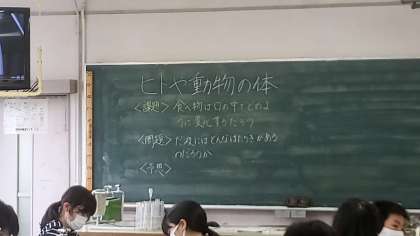 ヒトや動物の体
<課題> 食べ物は口の中でどのよ
うに変化するだろう
<問題> だ液にはどんなはたらきがある
のだろうか
<予想>